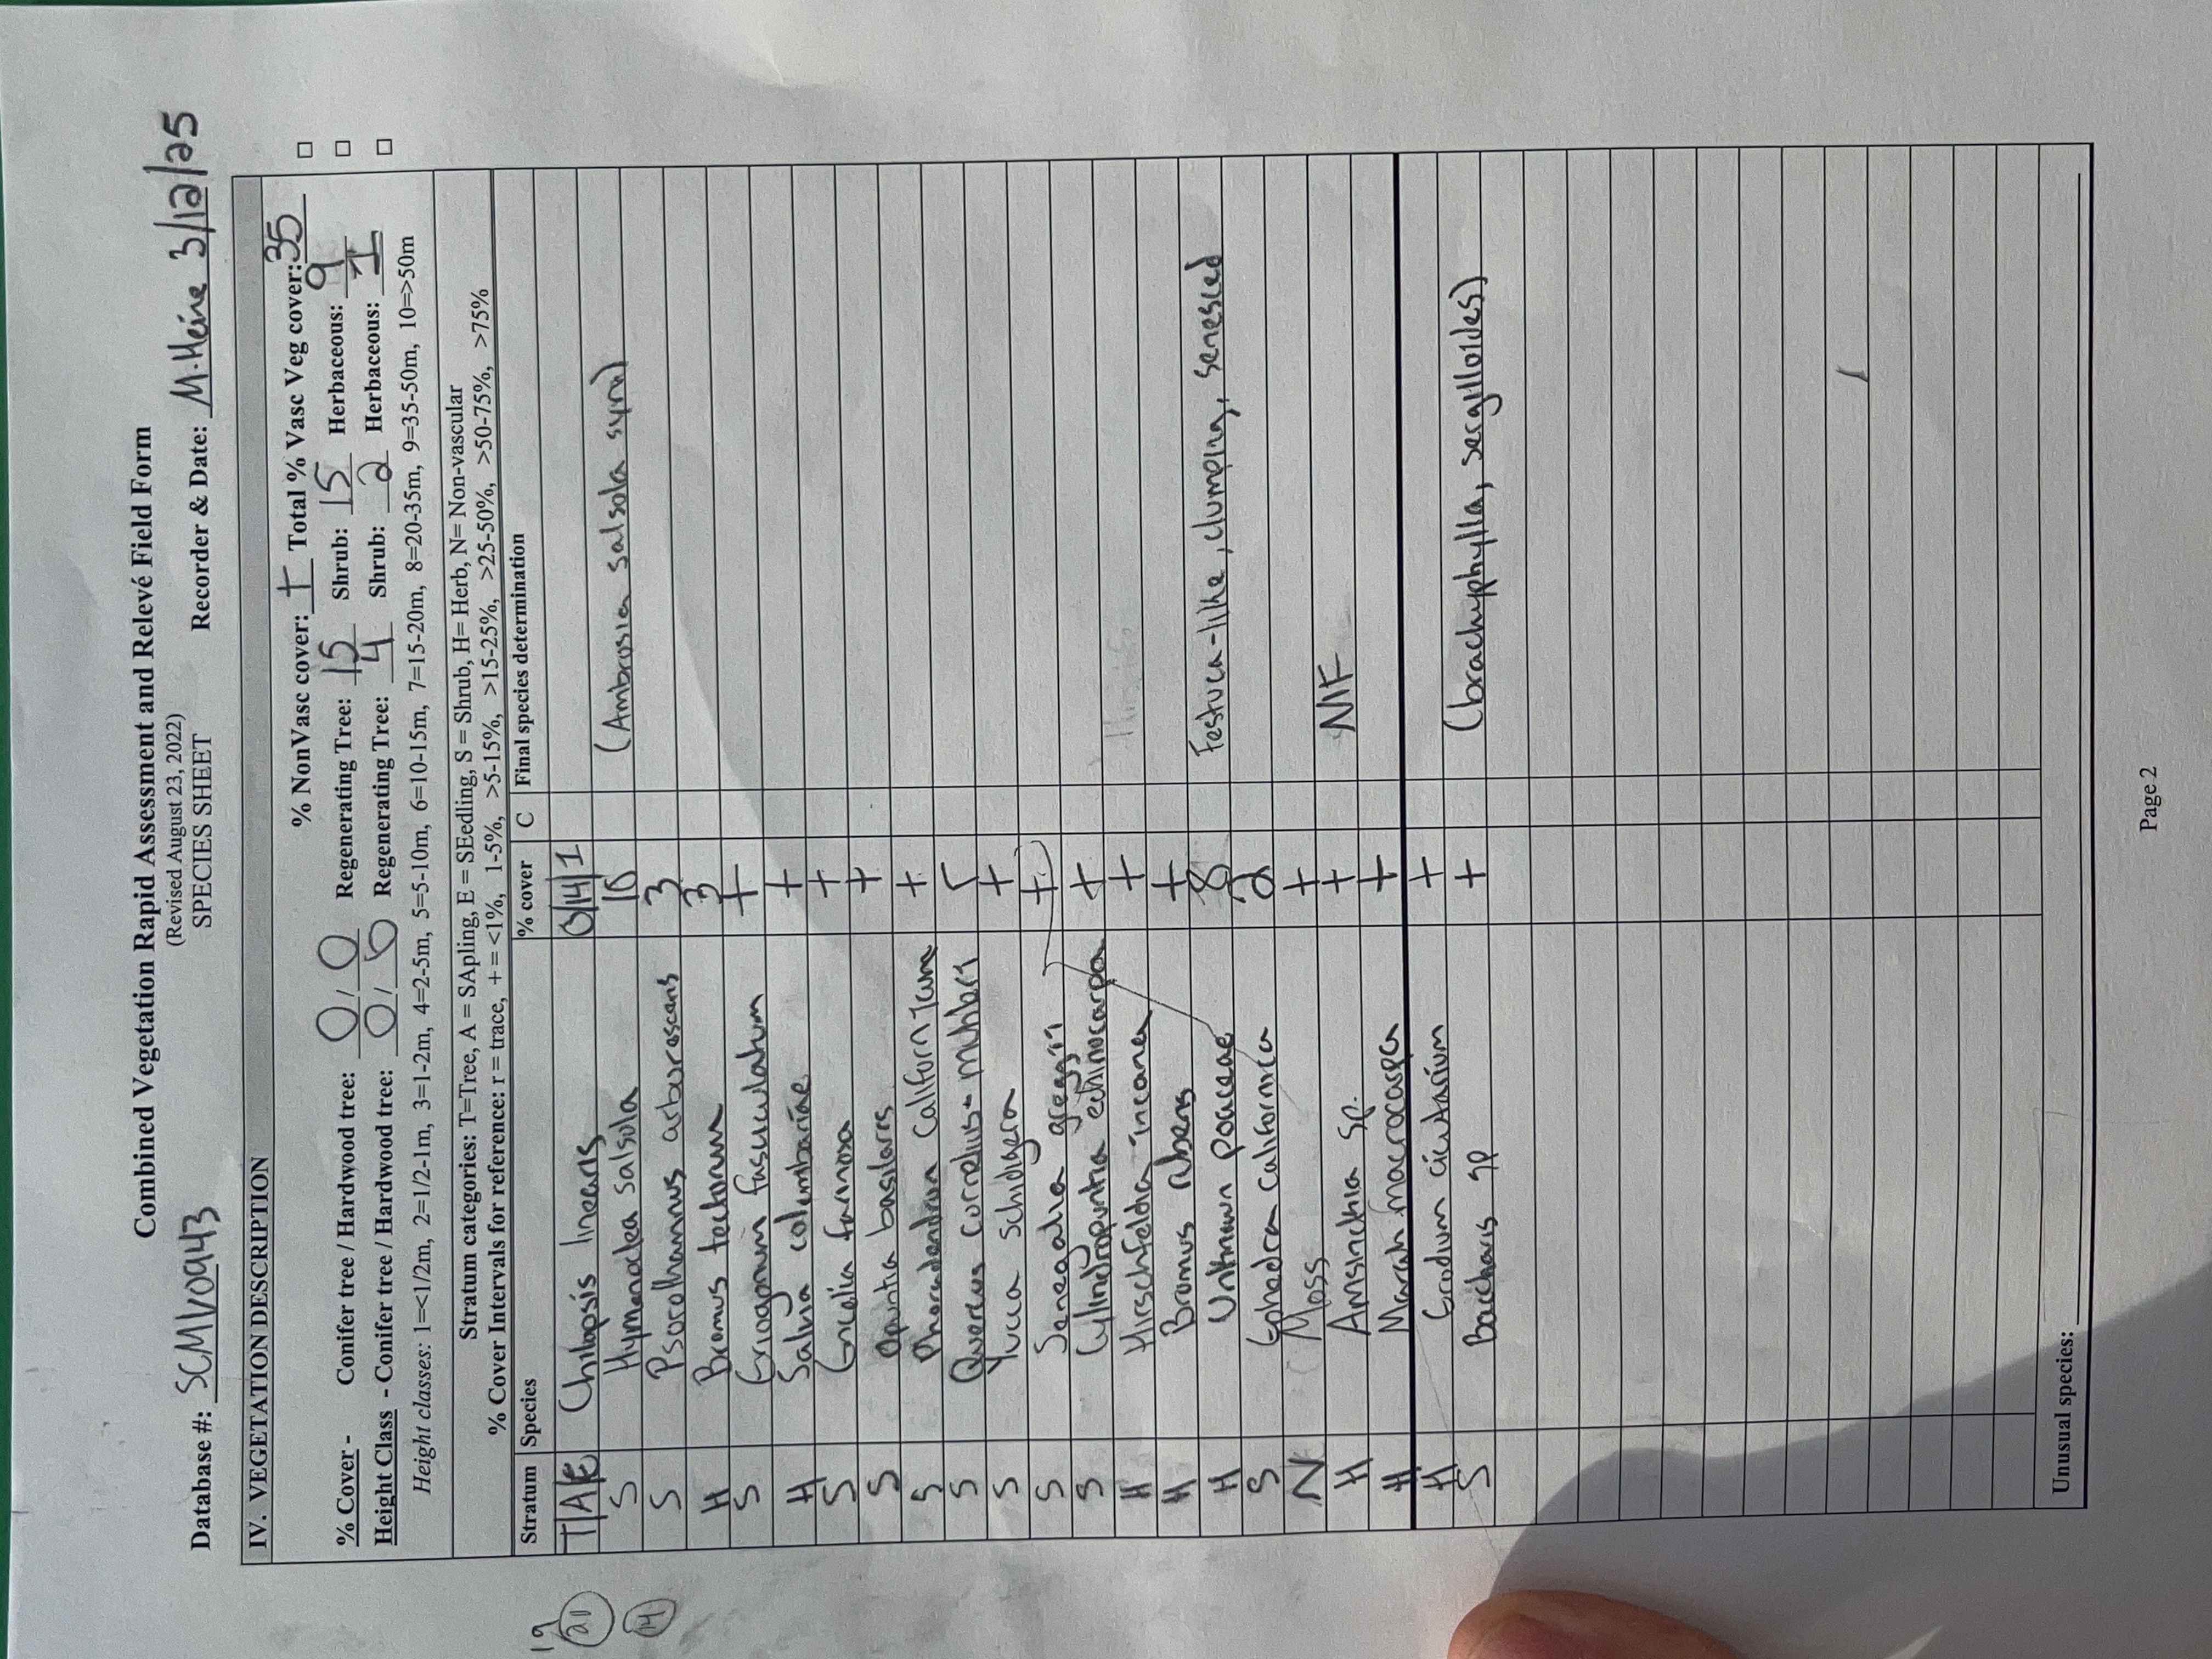 Combined Vegetation Rapid Assessment and Relevé Field Form
(Revised August 23, 2022)
SPECIES SHEET
Database #: SCMV0943 Recorder & Date: M. Heine 3/12/25
IV. VEGETATION DESCRIPTION
% NonVasc cover: + Total % Vasc Veg cover: 35
% Cover - Conifer tree / Hardwood tree: 0 / 0 Regenerating Tree: 15 Shrub: 15 Herbaceous: 9
Height Class - Conifer tree / Hardwood tree: 0 / 0 Regenerating Tree: 4 Shrub: 2 Herbaceous: 1
Height classes: 1=<1/2m, 2=1/2-1m, 3=1-2m, 4=2-5m, 5=5-10m, 6=10-15m, 7=15-20m, 8=20-35m, 9=35-50m, 10=>50m
Stratum categories: T=Tree, A = SApling, E = SEedling, S = Shrub, H= Herb, N= Non-vascular
% Cover Intervals for reference: r = trace, + = <1%, 1-5%, >5-15%, >15-25%, >25-50%, >50-75%, >75%
Stratum Species % cover C Final species determination
T/A/E Chilopsis linearis 0/14/1
S Hymenoclea salsola 10 (Ambrosia salsola syn)
S Psorothamnus arborescens 3
H Bromus tectorum 3
S Eriogonum fasciculatum +
H Salvia columbariae +
S Encelia farinosa +
S Opuntia basilaris +
S Phoradendron californicum +
S Quercus cornelius-mulleri
S Yucca schidigera +
S Senegalia greggii +
S Cylindropuntia echinocarpa +
H Hirschfeldia incana +
H Bromus rubens +
H Unknown poaceae 8 Festuca-like, clumping, senesced
S Ephedra californica 2
N Moss +
H Amsinckia sp. + NIF
H Marah macrocarpa +
H Erodium cicutarium +
S Baccharis sp + (brachyphylla, sergilloides)
Unusual species:
Page 2
19
21
14